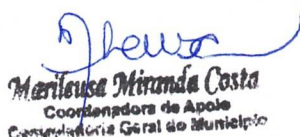 Marileusa Miranda Costa
Coordenadora de Apoio
Geral do Município